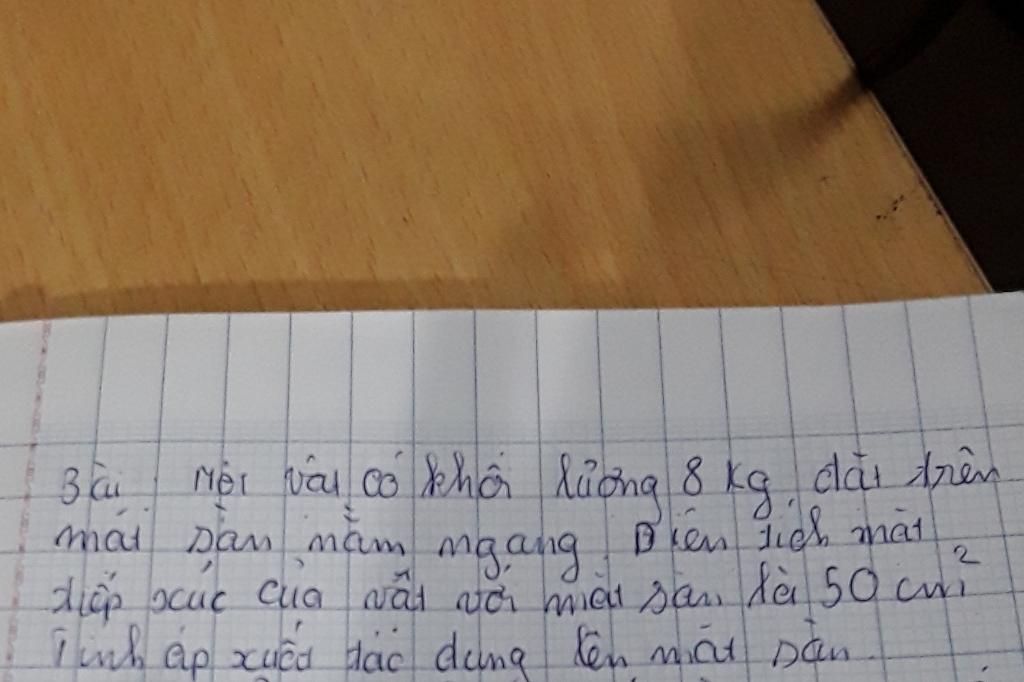 Bài Một vật có khối lượng 8 kg, đặt trên
mặt sàn nằm ngang. Diện tích mặt
tiếp xúc của vật với mặt sàn là 50 cm²
Tính áp xuất tác dụng lên mặt sàn.